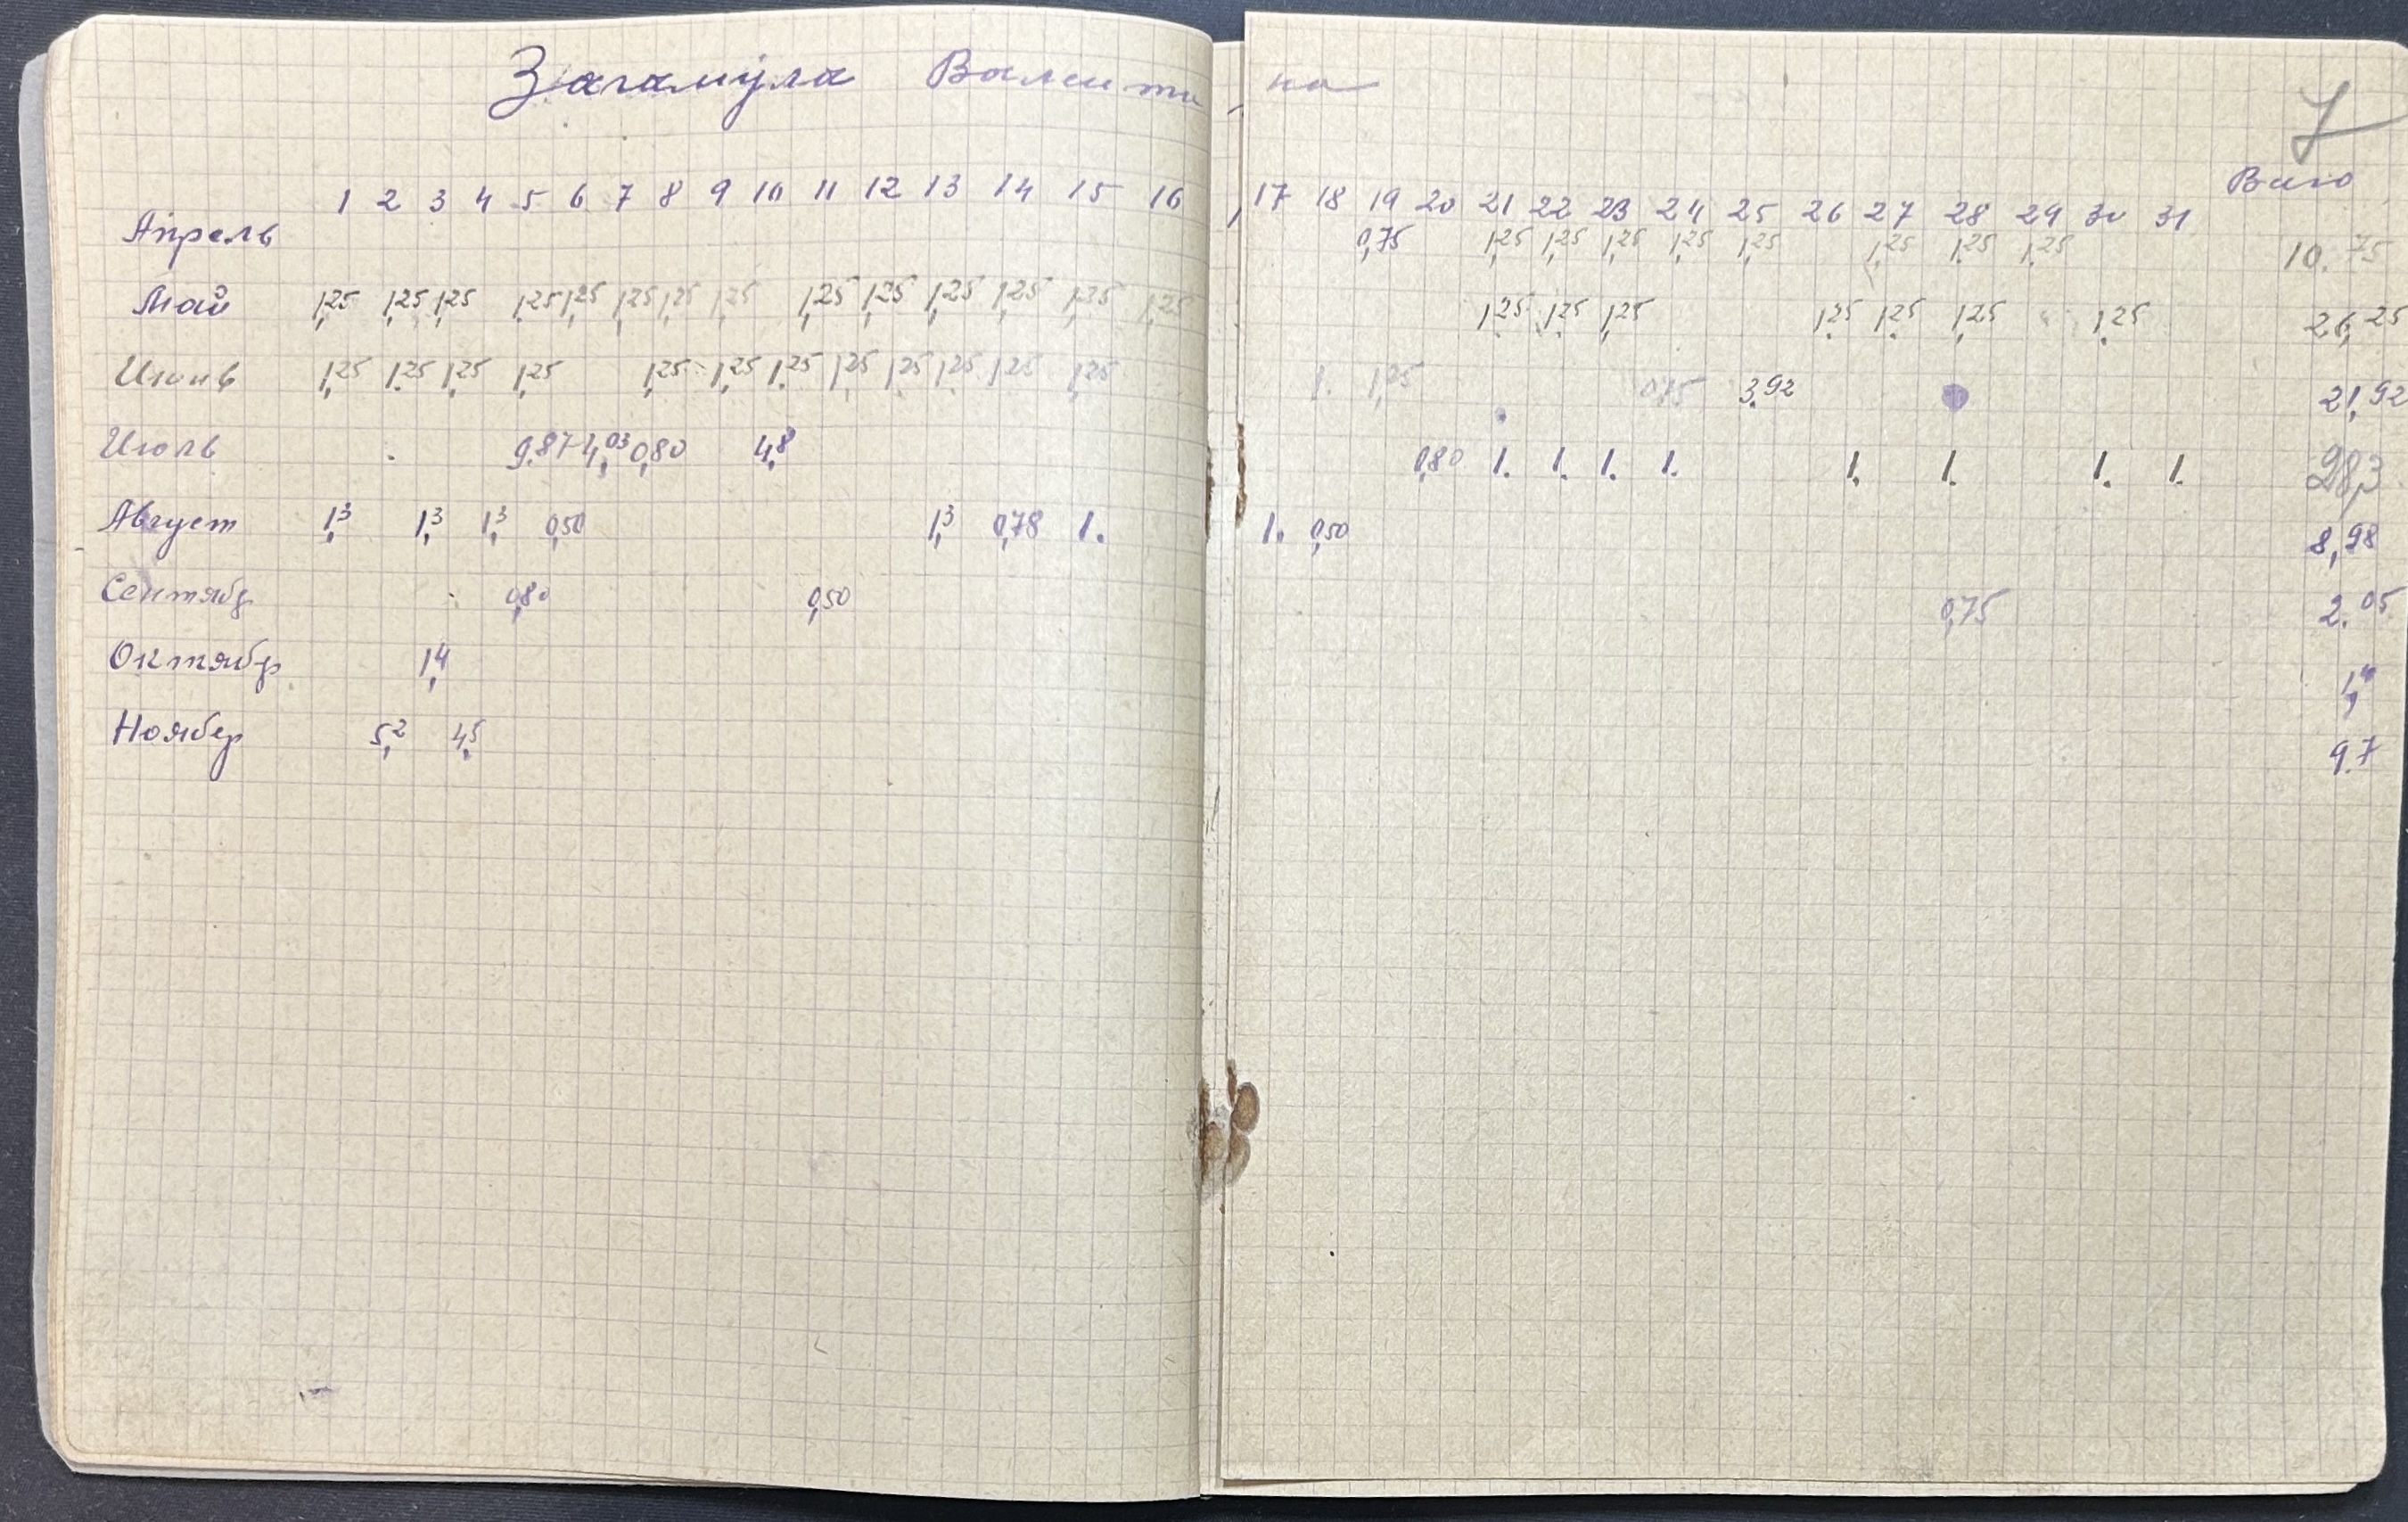 Загамула Валенти на
7
1 2 3 4 5 6 7 8 9 10 11 12 13 14 15 16 17 18 19 20 21 22 23 24 25 26 27 28 29 30 31
Апрель 0,75 1,25 1,25 1,25 1,25 1,25 1,25 1,25 1,25 10.75
Май 1,25 1,25 1,25 1,25 1,25 1,25 1,25 1,25 1,25 1,25 1,25 1,25 1,25 1,25 1,25 1,25 1,25 1,25 1,25 1,25 1,25 26,25
Июнь 1,25 1,25 1,25 1,25 1,25 1,25 1,25 1,25 1,25 1,25 1,25 1,25 1. 1,25 0,75 3,92 21,92
Июль 9.87 4,03 0,80 4,8 0,80 1. 1. 1. 1. 1. 1. 1. 1. 28,3
Август 1,3 1,3 1,3 0,50 1,3 0,78 1. 1. 0,50 8,98
Сентябр 0,80 0,50 0,75 2.05
Октябр 1,4 1,4
Ноябер 5,2 4,5 9.7